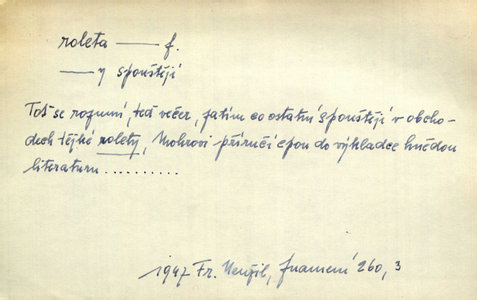 roleta — f.
— y spouštějí
Toť se rozumí, teď večer, zatím co ostatní spouštějí v obcho-
dech těžké rolety, Mohrovi příručí cpou do výkladce hnědou
literaturu ..........
1947 Fr. Neužil, Znamení 260, 3